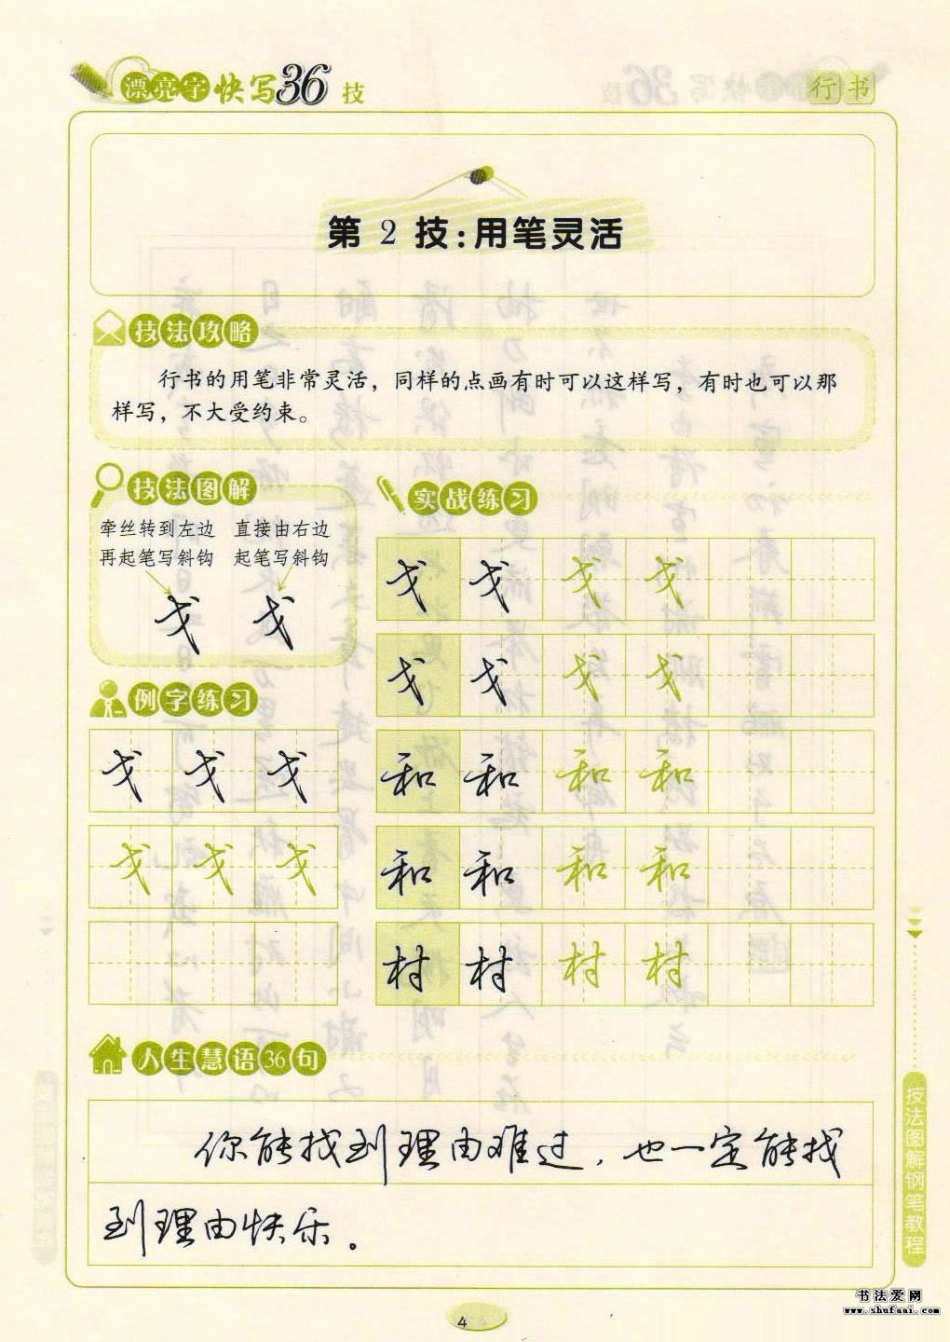 漂亮字快写36技
行书
第 2 技:用笔灵活
技法攻略
行书的用笔非常灵活，同样的点画有时可以这样写，有时也可以那
样写，不大受约束。
技法图解
牵丝转到左边
再起笔写斜钩
直接由右边
起笔写斜钩
戈 戈
例字练习
戈 戈 戈
戈 戈 戈
实战练习
戈 戈 戈 戈
戈 戈 戈 戈
和 和 和 和
和 和 和 和
村 村 村 村
人生慧语36句
你能找到理由难过，也一定能找
到理由快乐。
技法图解钢笔教程
4
书法爱网
www.shufaai.com